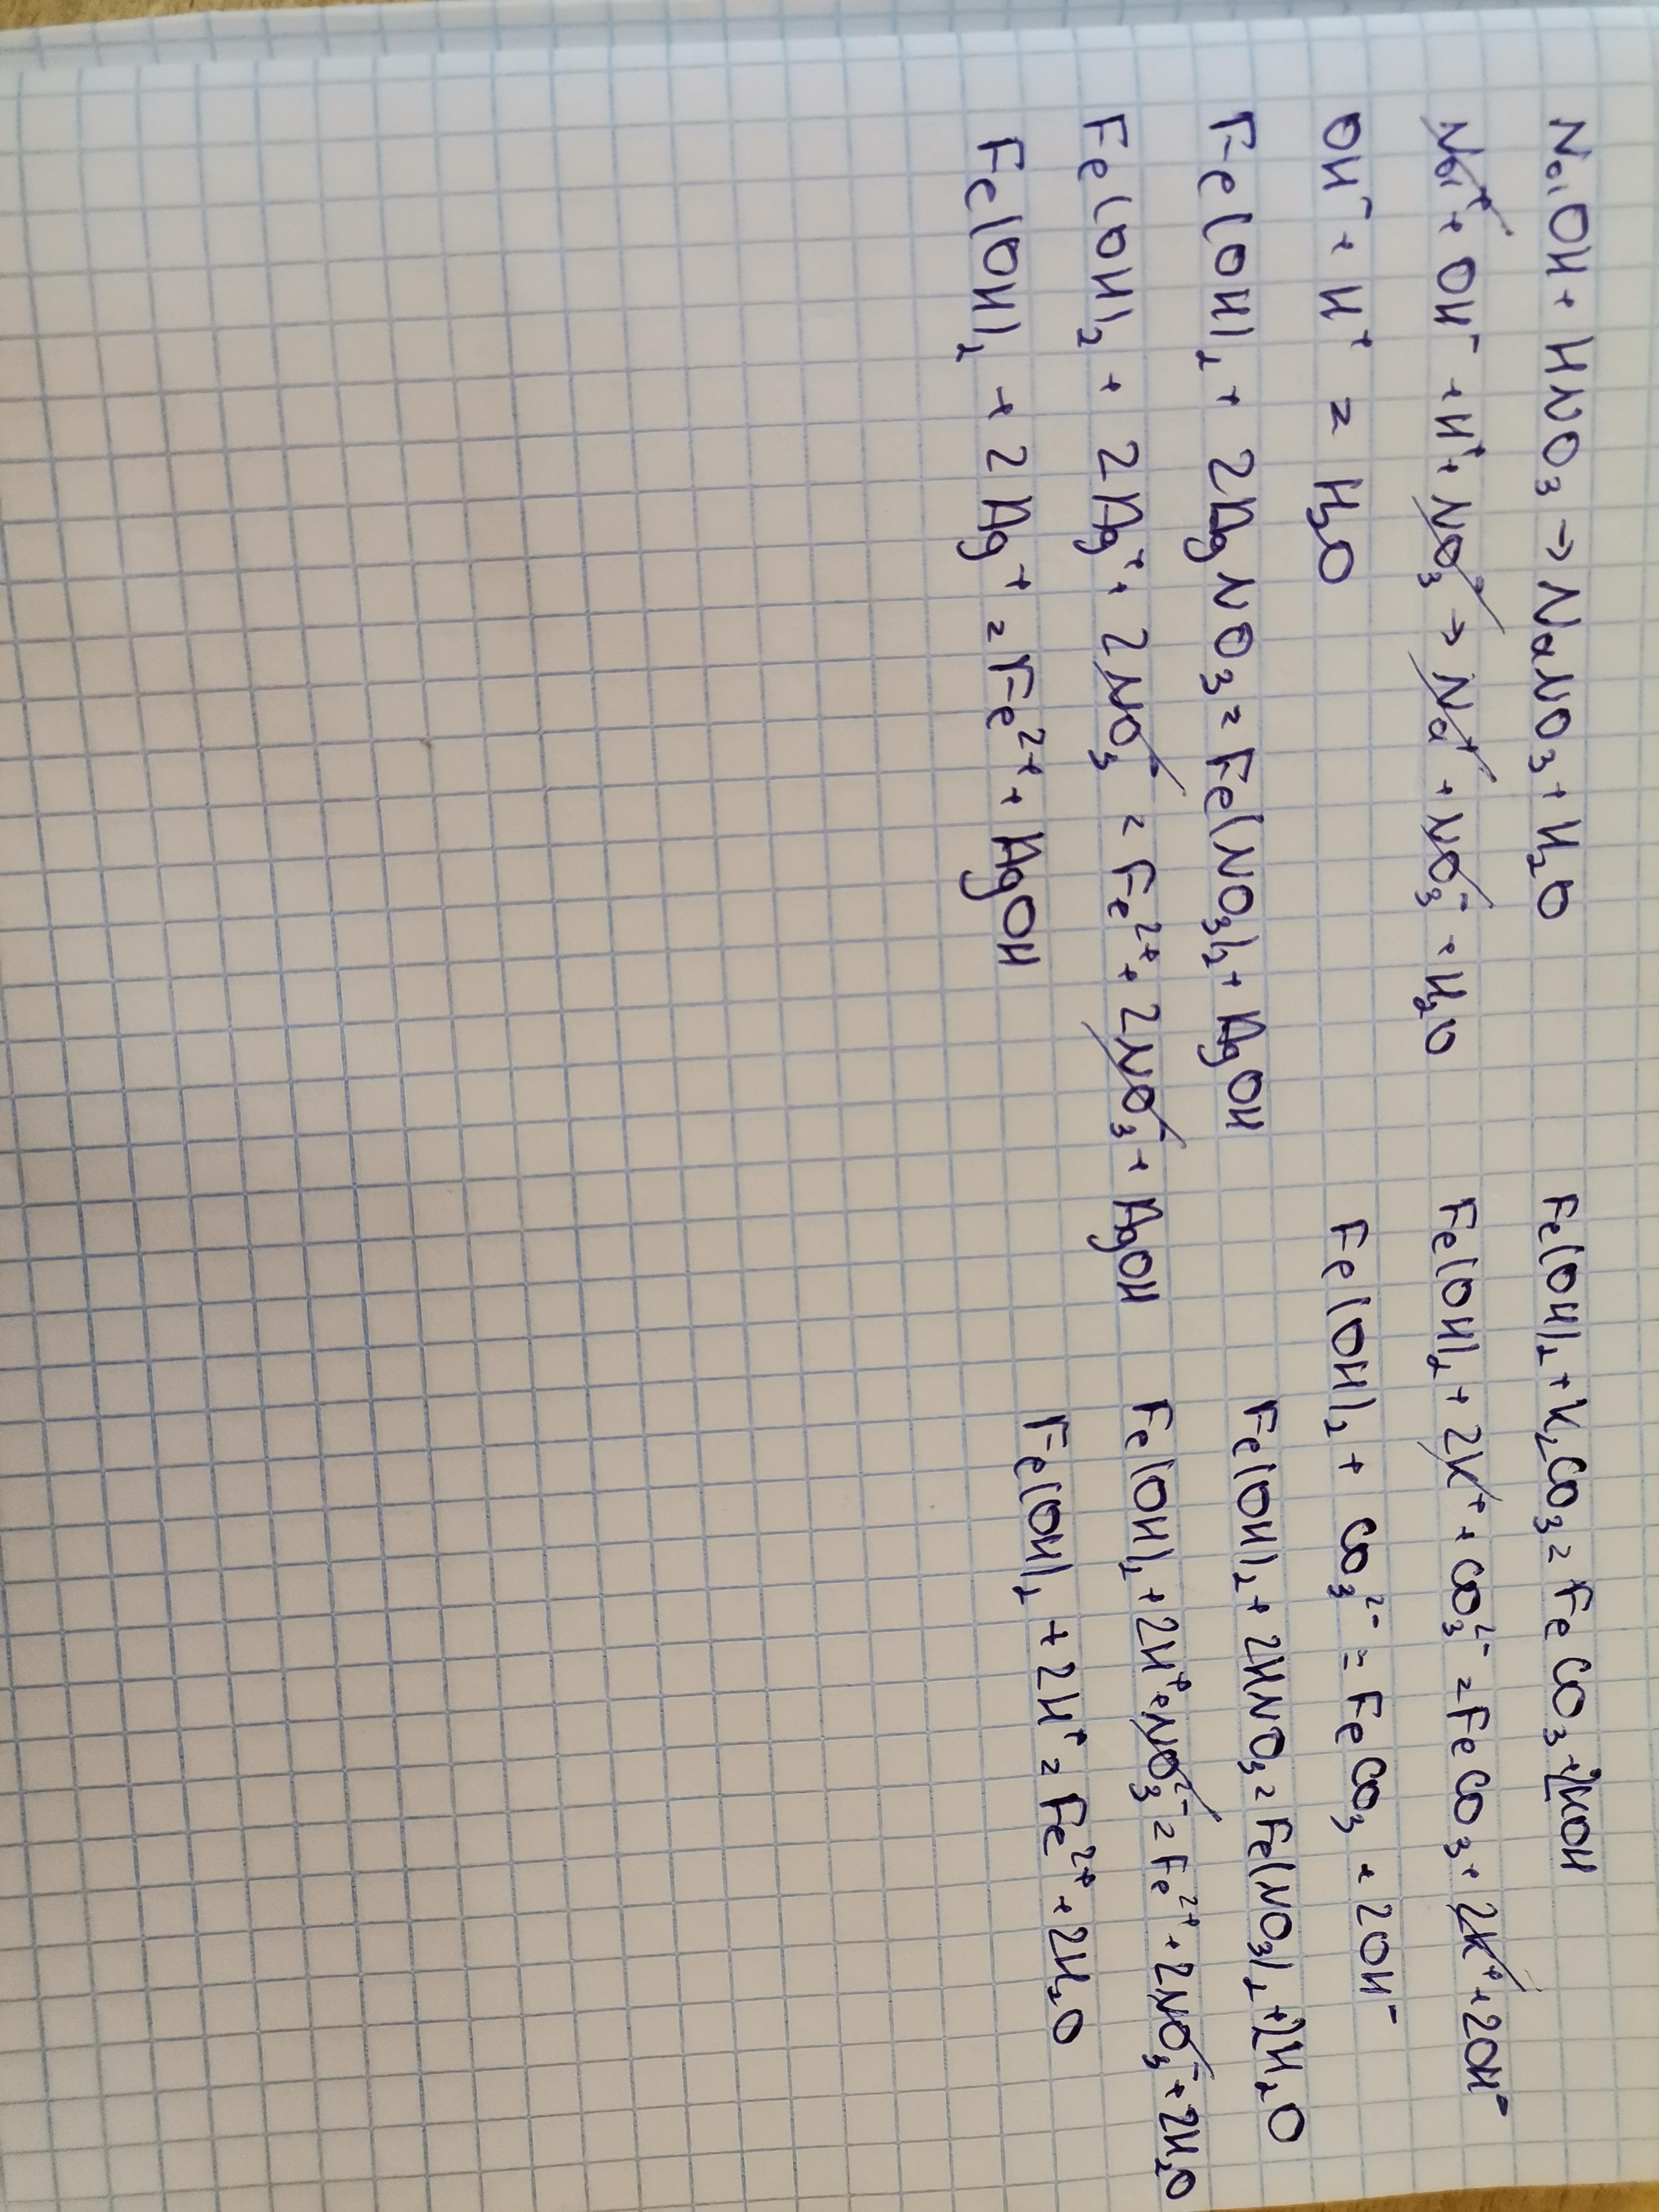 NaOH + HNO₃ → NaNO₃ + H₂O
Na⁺ + OH⁻ + H⁺ + NO₃⁻ → Na⁺ + NO₃⁻ + H₂O
OH⁻ + H⁺ = H₂O
Fe(OH)₂ + 2AgNO₃ = Fe(NO₃)₂ + AgOH
Fe(OH)₂ + 2Ag⁺ + 2NO₃⁻ = Fe²⁺ + 2NO₃⁻ + AgOH
Fe(OH)₂ + 2Ag⁺ = Fe²⁺ + AgOH
Fe(OH)₂ + K₂CO₃ = FeCO₃ + 2KOH
Fe(OH)₂ + 2K⁺ + CO₃²⁻ = FeCO₃ + 2K⁺ + 2OH⁻
Fe(OH)₂ + CO₃²⁻ = FeCO₃ + 2OH⁻
Fe(OH)₂ + 2HNO₃ = Fe(NO₃)₂ + 2H₂O
Fe(OH)₂ + 2H⁺ + NO₃²⁻ = Fe²⁺ + 2NO₃⁻ + 2H₂O
Fe(OH)₂ + 2H⁺ = Fe²⁺ + 2H₂O